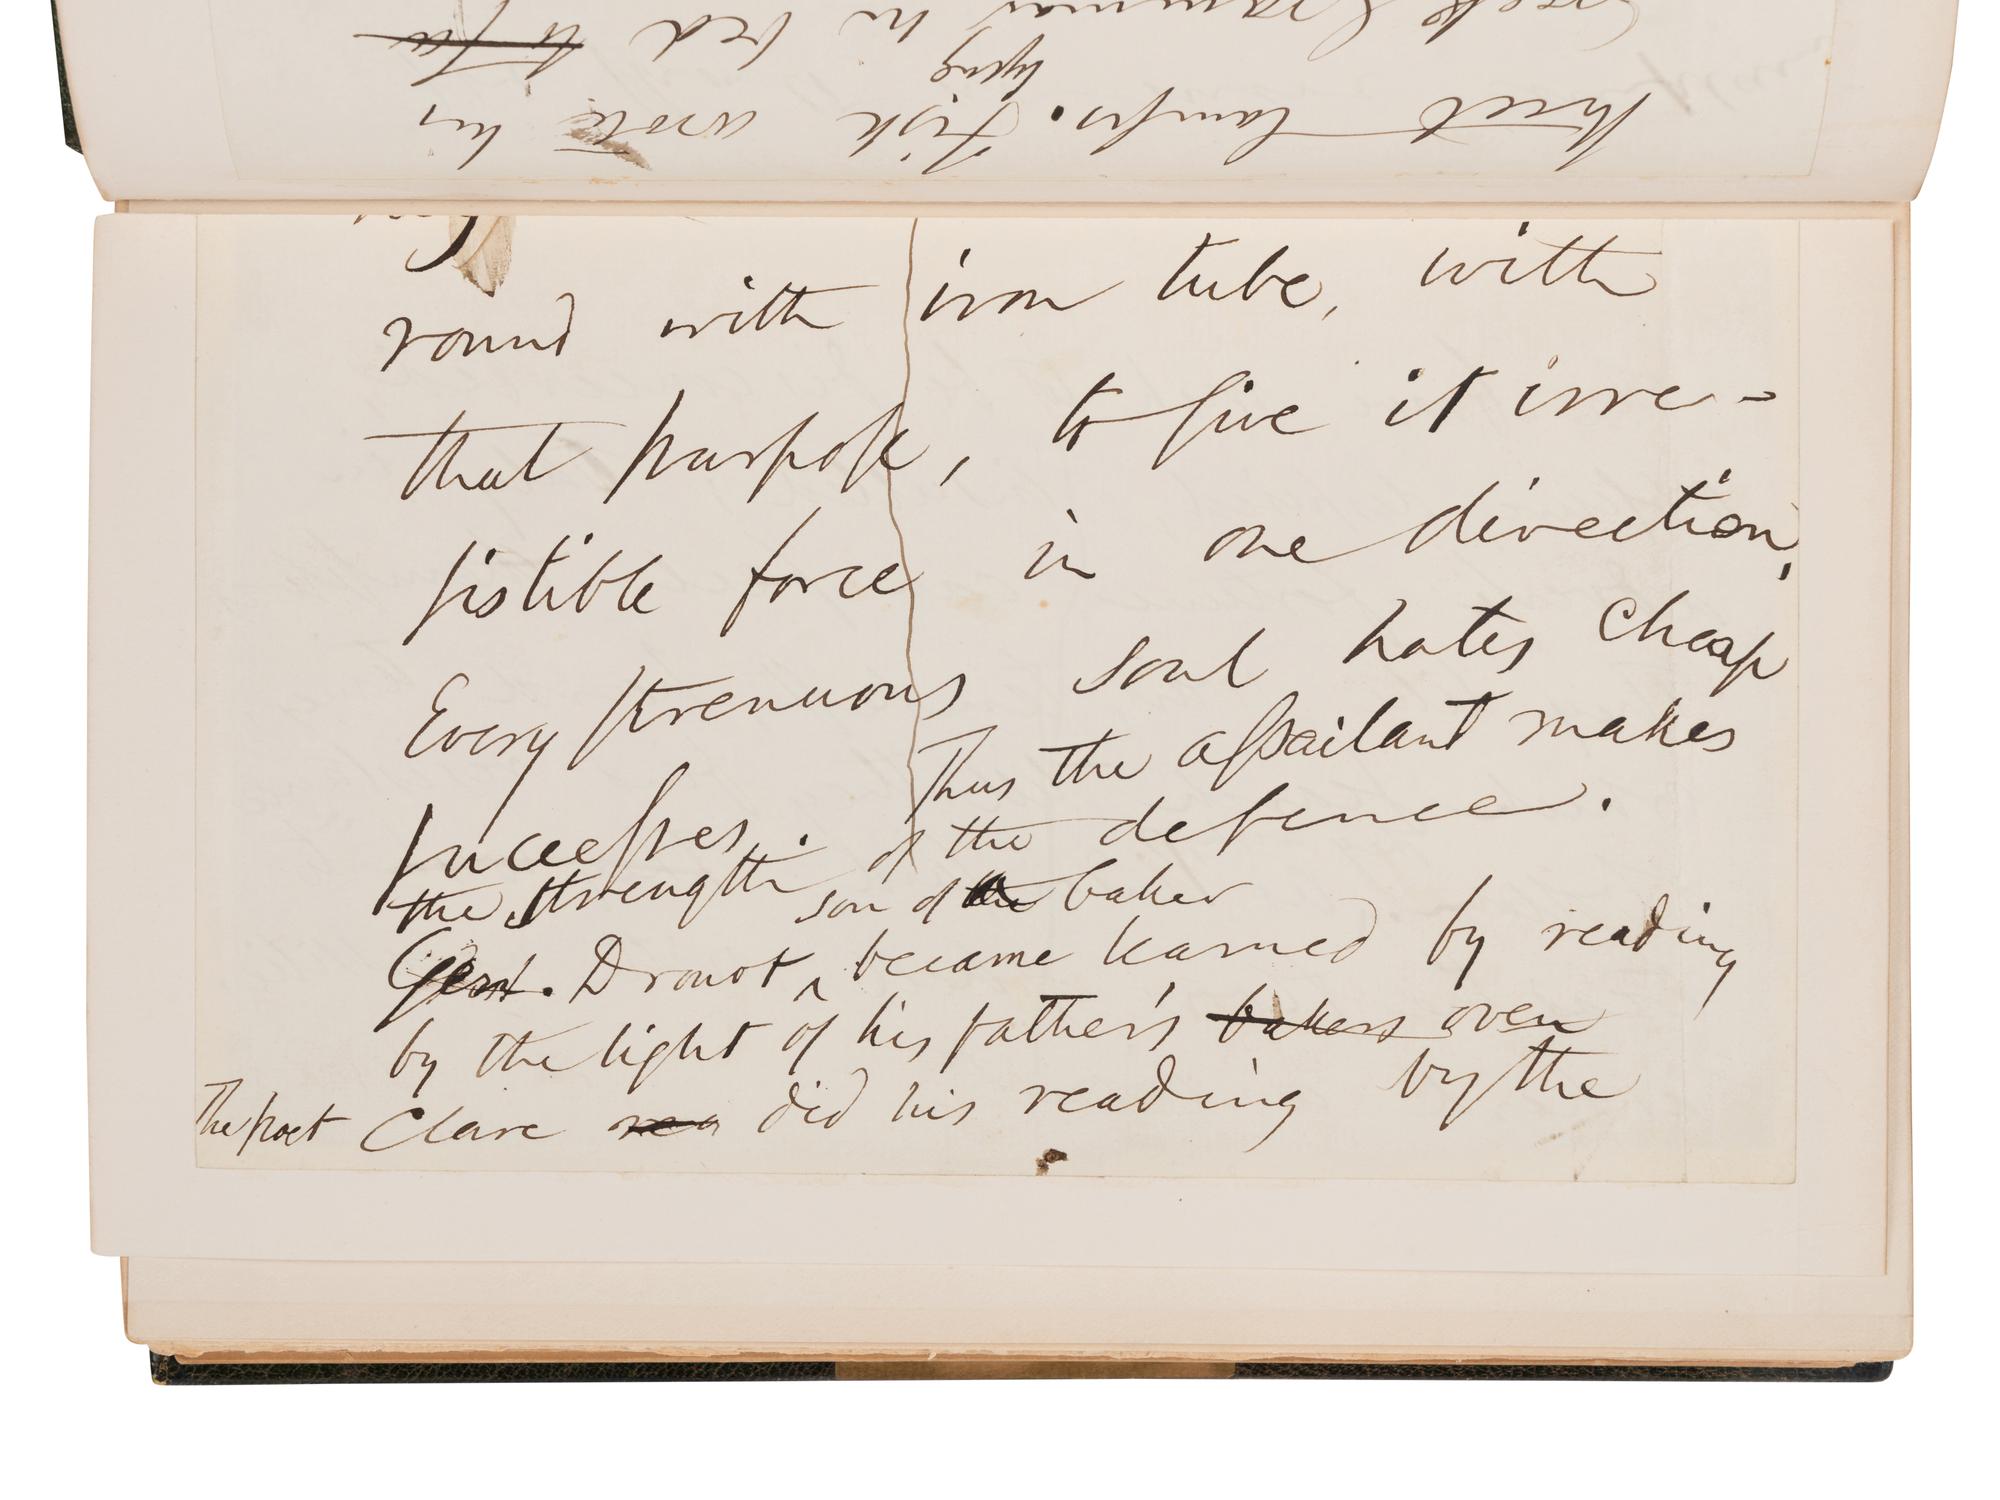 round with iron tube, with
that purpose, to give it irre-
sistible force in one direction,
Every strenuous soul hates cheap
successes. Thus the assailant makes
the strength of the defence.
son of the baker
Genl. Drouot ^ became learned by reading
by the light of his father's bakers oven
The poet Clare did his reading by the
street lamps. Fisk wrote his
lying
Greek Grammar in bed to